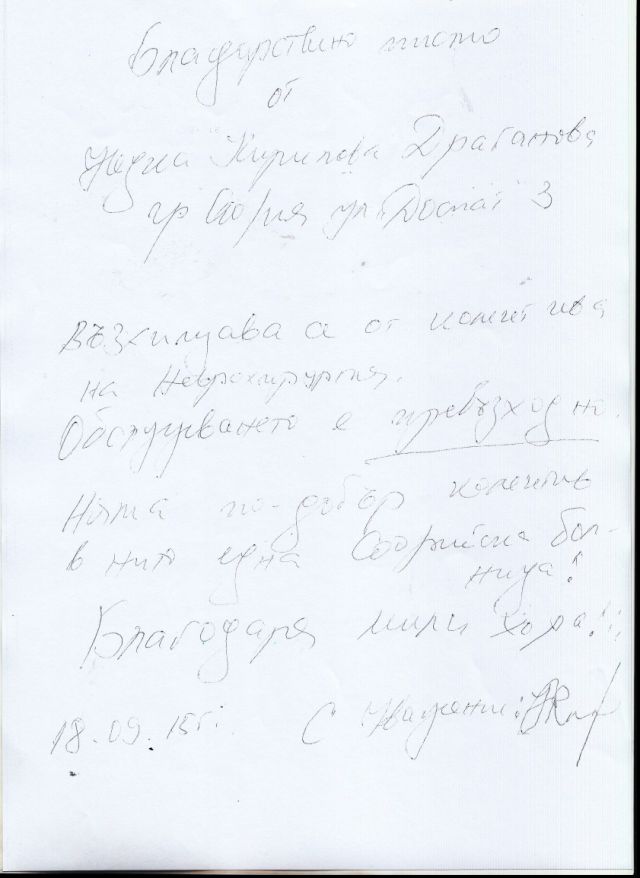 Благодарствино писмо
от
Кирилова Драганова
гр София ул. Доспат 3
Възхищава се от колектива
на Неврохирургия.
Обслужването е превъзходно.
Няма по-добър колектив
в нито една Софийска бол-
ница!
Благодаря мили хора!!!
18.09.15г. С Уважение: